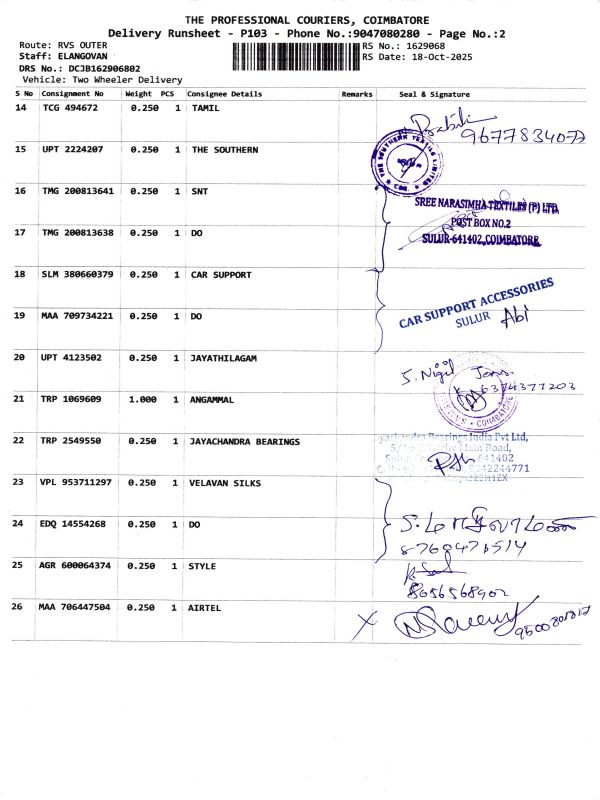 THE PROFESSIONAL COURIERS, COIMBATORE
Delivery Runsheet - P103 - Phone No.:9047080280 - Page No.:2
Route: RVS OUTER RS No.: 1629068
Staff: ELANGOVAN RS Date: 18-Oct-2025
DRS No.: DCJB162906802
Vehicle: Two Wheeler Delivery
S No Consignment No Weight PCS Consignee Details Remarks Seal & Signature
14 TCG 494672 0.250 1 TAMIL
9677834077
15 UPT 2224207 0.250 1 THE SOUTHERN
THE SOUTHERN TEXTILE LIMITED
CBE.
16 TMG 200813641 0.250 1 SNT
SREE NARASIMHA TEXTILES (P) LTD.
POST BOX NO.2
17 TMG 200813638 0.250 1 DO
SULUR-641402, COIMBATORE
18 SLM 380660379 0.250 1 CAR SUPPORT
CAR SUPPORT ACCESSORIES
19 MAA 709734221 0.250 1 DO
SULUR Abi
20 UPT 4123502 0.250 1 JAYATHILAGAM
6374377203
21 TRP 1069609 1.000 1 ANGAMMAL
COIMBATORE
22 TRP 2549550 0.250 1 JAYACHANDRA BEARINGS
Bearings India Pvt Ltd,
Main Road,
641402
23 VPL 953711297 0.250 1 VELAVAN SILKS
24 EDQ 14554268 0.250 1 DO
8760471514
25 AGR 600064374 0.250 1 STYLE
8056568902
26 MAA 706447504 0.250 1 AIRTEL
X